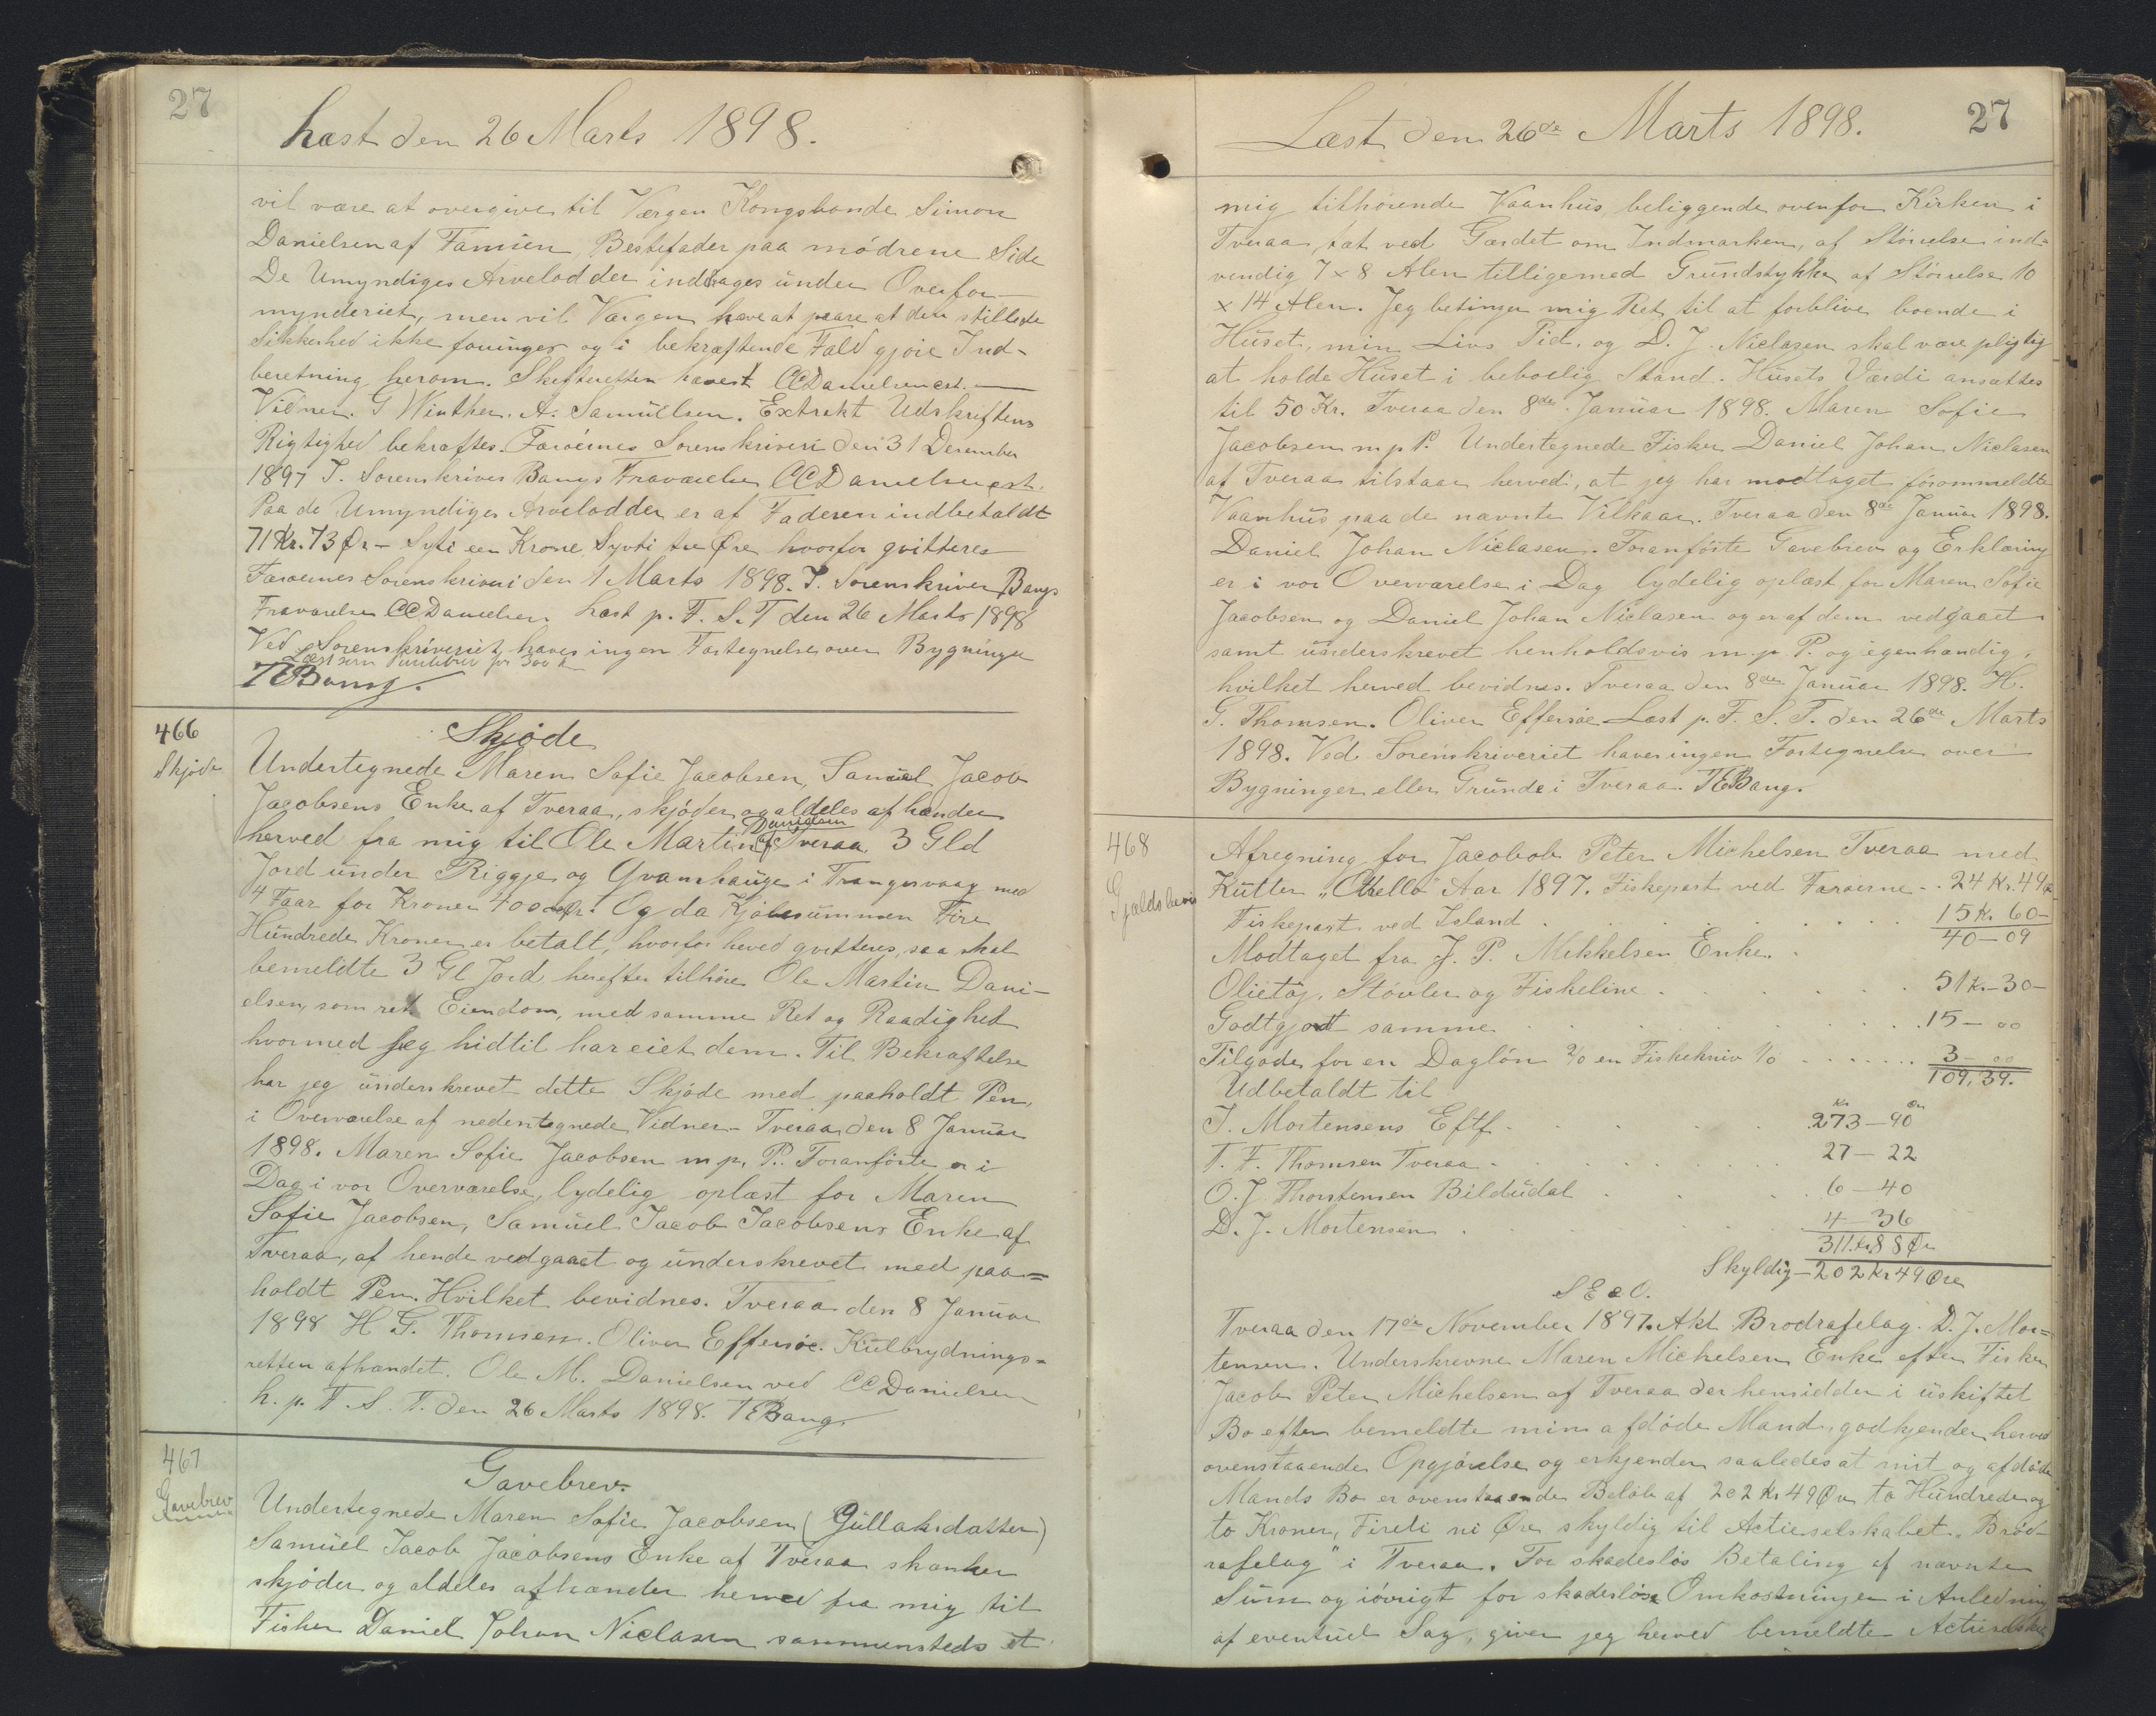 27
Læst den 26 Marts 1898.
vil være at overgive til Værgen Kongsbonde Simon
Danielsen af Famien, Bestefader paa mødrene Side
De Umyndiges Arvelodder inddrages under Overfor-
mynderiet, men vil Værgen have at paase at den stillede
Sikkerhed ikke foringes og i bekræftende Fald gjøre Ind-
beretning herom. Skifteretten hævet. CCDanielsen cst.
Vidner. G Winther. A. Samuelsen. Extrakt Udskriftens
Rigtighed bekræftes. Færøernes Sorenskriveri den 31 December
1897 I. Sorenskriver Bangs Fraværelse CCDanielsen cst.
Paa de Umyndiges Arvelodder er af Faderen indbetaldt
71 Kr. 73 Ør - Syti een Krone, Syvti tre Øre hvorfor qvitteres
Færøernes Sorenskriveri den 1 Marts 1898. I. Sorenskriver Bangs
Fraværelse CCDanielsen Læst p. F. S. T den 26 Marts 1898
Ved Sorenskriveriet haves ingen Fortegnelse over Bygninger
Læst som Pantebrev for 300 K
TEBang.
466
Skjøde
Skjøde
Undertegnede Maren Sofie Jacobsen, Samuel Jacob
Jacobsens Enke af Tveraa, skjøder og aldeles afhænder
herved fra mig til Ole Martin Danielsen af Tveraa 3 Gld
Jord under Riggje og Qvamhauge i Trangisvaag med
4 Faar for Kroner 400 Ør. Og da Kjøbesummen Fire
Hundrede Kroner er betalt, hvorfor herved qvitteres, saa skal
bemeldte 3 Gl Jord herefter tilhøre Ole Martin Dani-
elsen, som ret Eiendom, med samme Ret og Raadighed
hvormed jeg hidtil har eiet dem. Til Bekræftelse
har jeg underskrevet dette Skjøde med paaholdt Pen,
i Overværelse af nedentegnede Vidner - Tveraa den 8 Januar
1898. Maren Sofie Jacobsen m p. P. Foranførte er i
Dag i vor Overværelse, lydelig oplæst for Maren
Sofie Jacobsen, Samuel Jacob Jacobsens Enke af
Tveraa, af hende vedgaaet og underskrevet med paa=
holdt Pen. Hvilket bevidnes. Tveraa den 8 Januar
1898 H G. Thomsen. Oliver Effersøe. Kulbrydnings=
retten afhændet. Ole M. Danielsen ved CCDanielsen
L. p. F. S. T. den 26 Marts 1898. TEBang
467
Gavebrev
Gavebrev.
Undertegnede Maren Sofie Jacobsen (Gullaksdatter)
Samuel Jacob Jacobsens Enke af Tveraa skænker
skjøder og aldeles afhænder herved fra mig til
Fisker Daniel Johan Niclasen sammensteds et
27
Læst den 26de Marts 1898.
mig tilhørende Vaanhus, beliggende ovenfor Kirken i
Tveraa, tæt ved Gærdet om Indmarken, af Størrelse ind=
vendig 7 x 8 Alen tilligemed Grundstykke af Størrelse 10
x 14 Alen. Jeg betinger mig Ret til at forblive boende i
Huset, min Livs Tid, og D. J. Niclasen skal være pligtig
at holde Huset i beboelig Stand. Husets Værdi ansættes
til 50 Kr. Tveraa den 8de Januar 1898. Maren Sofie
Jacobsen m p P. Undertegnede Fisker Daniel Johan Niclasen
af Tveraa tilstaar herved, at jeg har modtaget forommeldte
Vaanhus paa de nævnte Vilkaar. Tveraa den 8de Januar 1898.
Daniel Johan Niclasen. Foranførte Gavebrev og Erklæring
er i vor Overværelse i Dag lydelig oplæst for Maren Sofie
Jacobsen og Daniel Johan Niclasen og er af dem vedgaaet
samt underskrevet henholdsvis m. p. P. og egenhændig,
hvilket herved bevidnes. Tveraa den 8de Januar 1898. H.
G. Thomsen. Oliver Effersøe Læst p. F. S. T. den 26de Marts
1898. Ved Sorenskriveriet haves ingen Fortegnelse over
Bygninger eller Grunde i Tveraa. TEBang.
468
Gjældsbevis
Afregning for Jacobob Peter Michelsen Tveraa med
Kutter "Othello" Aar 1897. Fiskepart ved Færøerne - . 24 Kr. 49 Ø
Fiskepart ved Island . . . . 15 Kr 60-
40-09
Modtaget fra J. P. Mikkelsen Enke. .
Olietøj, Støvler og Fiskeline . . . . 51 Kr-30-
Godtgjort samme . . . . 15-00
Tilgode for en Dagløn 2/0 en Fiskekniv 1/0 . . . . 3-00
109,39.
Udbetaldt til
Kr Ør
J. Mortensens Eftf. . . . 273-90
T. F. Thomsen Tveraa . . . . 27-22
O. J. Thorstensen Bildudal . . . 6-40
D. J. Mortensen . . . 4-36
311 Kr 88 Ør
Skyldig - 202 Kr 49 Øre
S E e O.
Tveraa den 17de November 1897. Akt. Brodrafelag. D. J. Mor=
tensen. Underskrevne Maren Michelsen Enke efter Fisker
Jacob Peter Michelsen af Tveraa der hensidder i uskiftet
Bo efter bemeldte min afdøde Mand, godkjender herved
ovenstaaende Opgjørelse og erkjender saaledes at mit og afdøde
Mands Bo er ovenstaaende Beløb af 202 Kr 49 Øre to Hundrede og
to Kroner, Fireti ni Øre skyldig til Actieselskabet "Brød-
rafelag" i Tveraa. For skadesløs Betaling af nævnte
Sum og iøvrigt for skadesløse Omkostninger i Anledning
af eventuel Sag, giver jeg herved bemeldte Actieselska